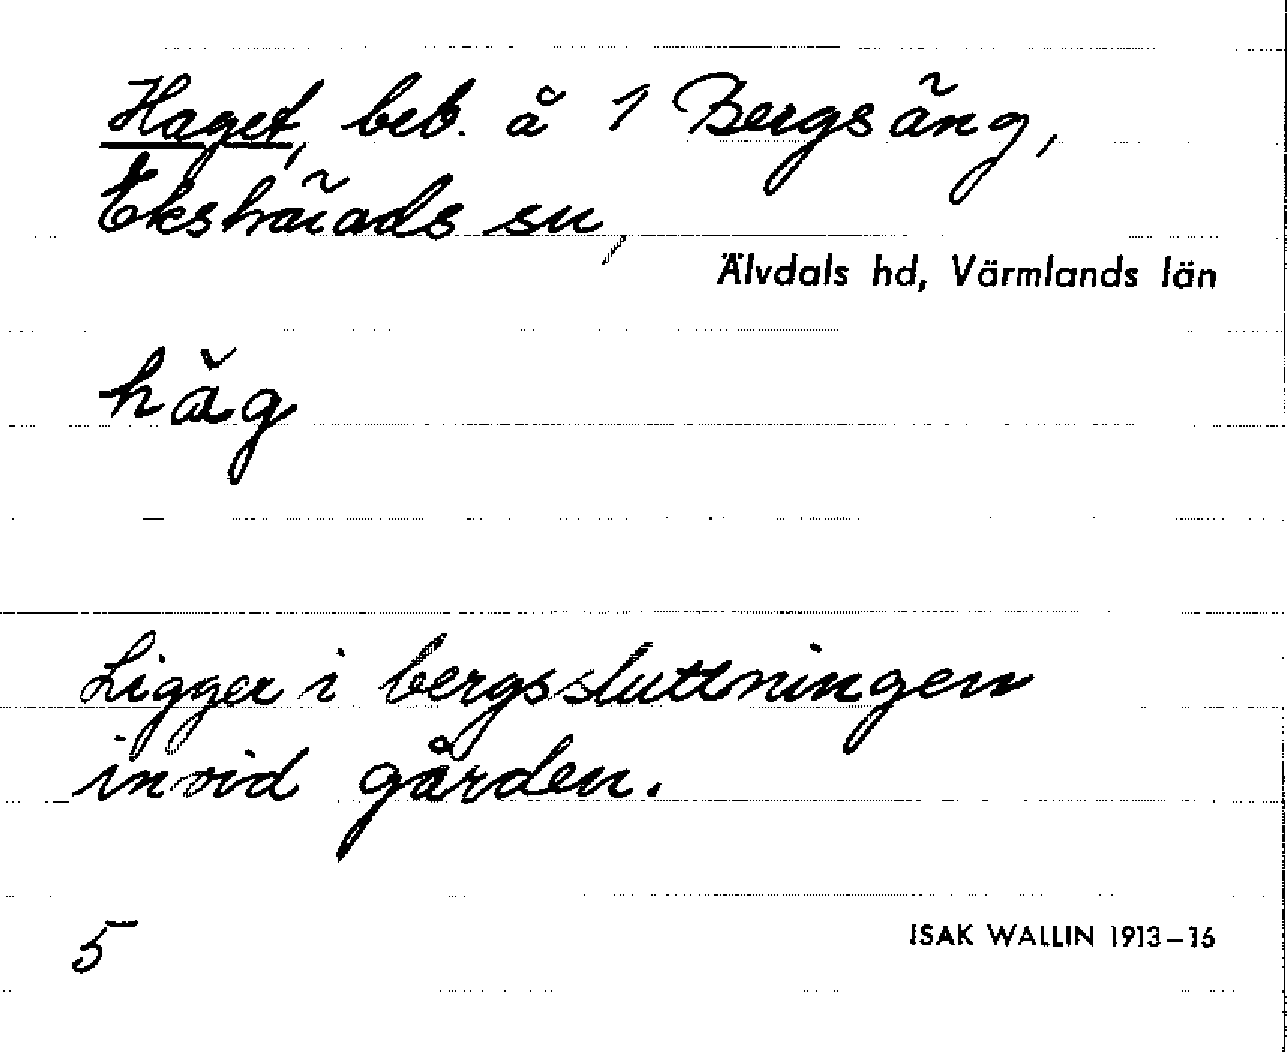 Haget, beb. å 1 Bergsäng,
Ekshärads sn,
Älvdals hd, Värmlands län
hăg
Ligger i bergssluttningen
invid gården.
5
ISAK WALLIN 1913–16